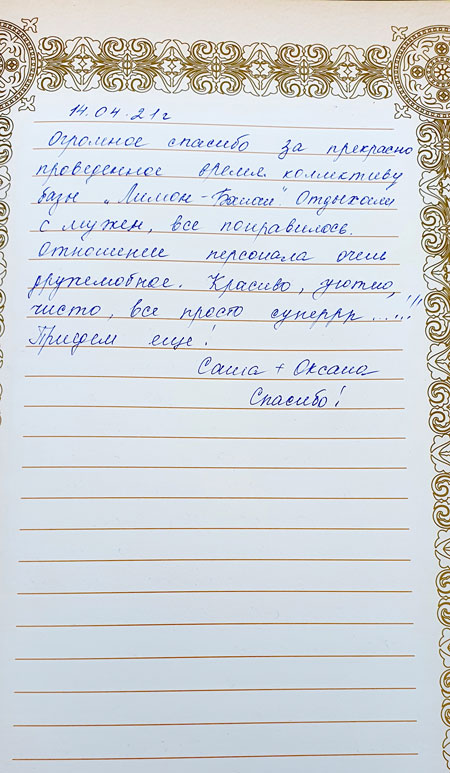 14.04.21г
Огромное спасибо за прекрасно
проведенное время коллективу
базы „Лимон-Балай". Отдыхали
с мужем, все понравилось.
Отношение персонала очень
дружелюбное. Красиво, уютно,
чисто, все просто суперрр...!!!
Приедем еще!
Саша + Оксана
Спасибо!